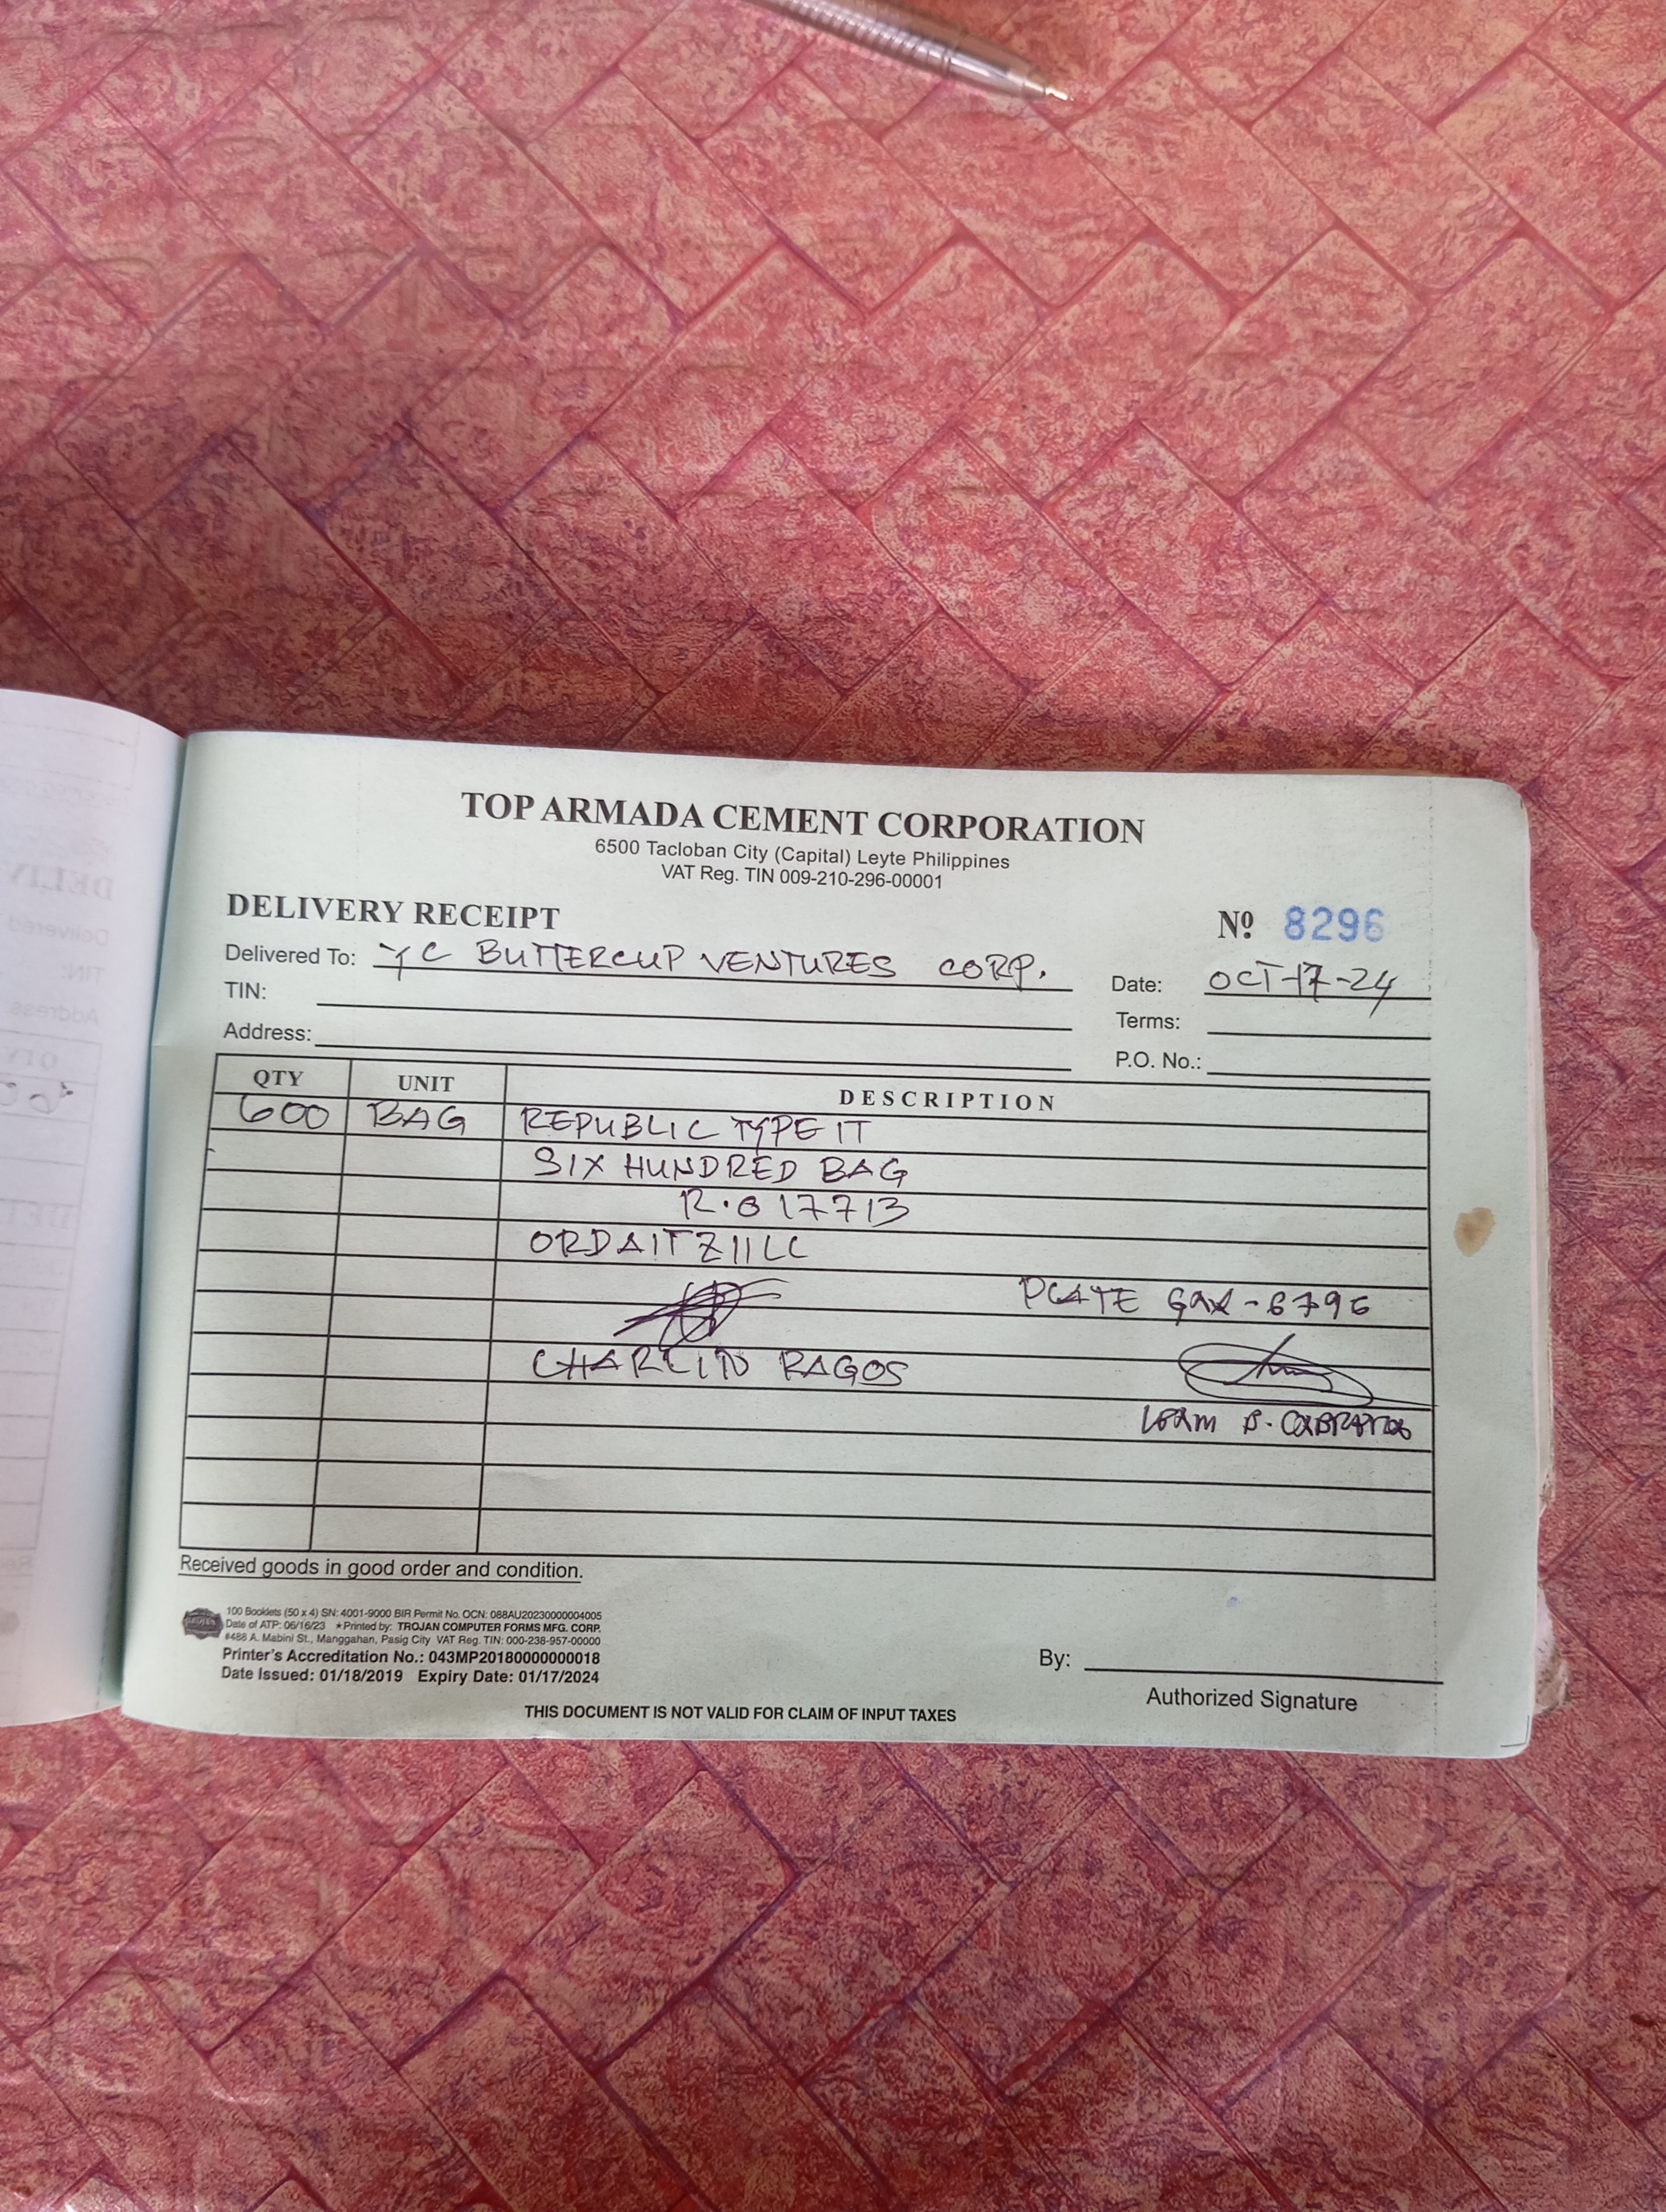 TOP ARMADA CEMENT CORPORATION
6500 Tacloban City (Capital) Leyte Philippines
VAT Reg. TIN 009-210-296-00001
DELIVERY RECEIPT
Nº 8296
Delivered To: YC BUTTERCUP VENTURES CORP.
Date: OCT-17-24
TIN:
Terms:
Address:
P.O. No.:
QTY UNIT DESCRIPTION
600 BAG REPUBLIC TYPE IT
SIX HUNDRED BAG
R.O 17713
ORDAITZ11LC
PLATE GAX-6796
CHARLITO RAGOS
B.
Received goods in good order and condition.
100 Booklets (50 x 4) SN: 4001-9000 BIR Permit No. OCN: 088AU20230000004005
Date of ATP: 06/16/23 ★Printed by: TROJAN COMPUTER FORMS MFG. CORP.
#488 A. Mabini St., Manggahan, Pasig City VAT Reg. TIN: 000-238-957-00000
Printer's Accreditation No.: 043MP20180000000018
Date Issued: 01/18/2019 Expiry Date: 01/17/2024
By:
Authorized Signature
THIS DOCUMENT IS NOT VALID FOR CLAIM OF INPUT TAXES